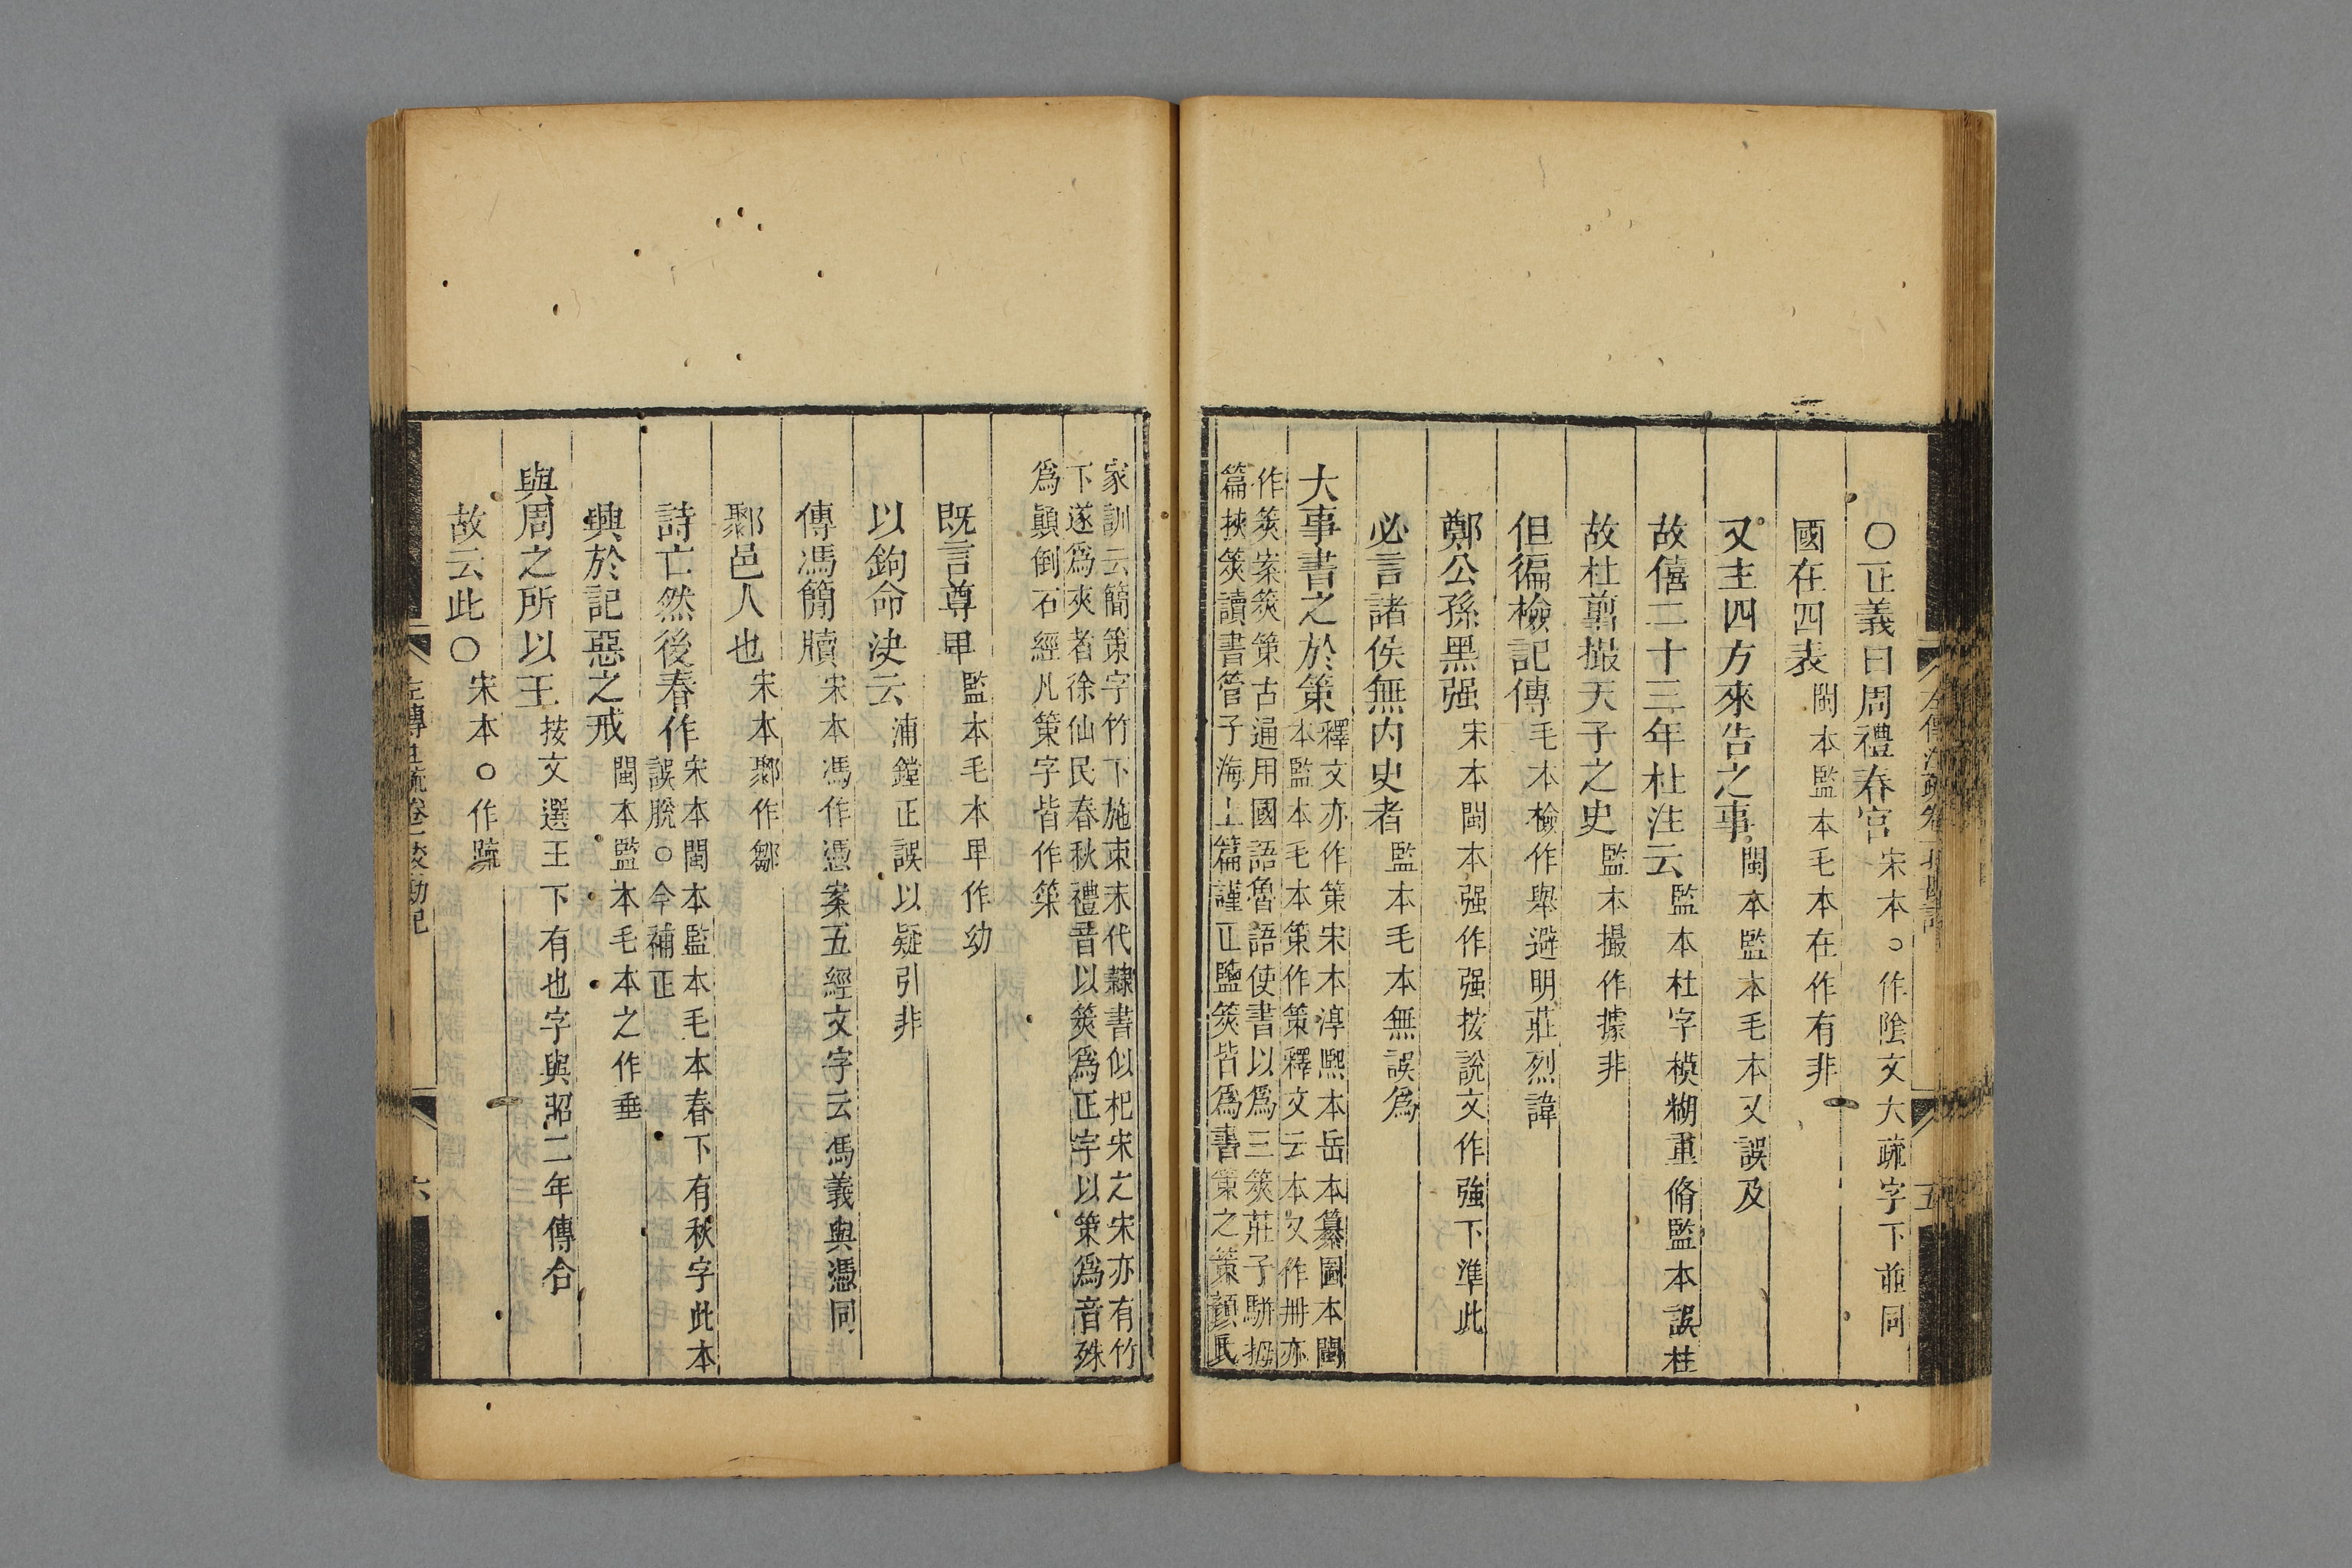 〇正義曰周禮春官宋本〇作陰文大疏字下並同
國在四表閩本監本毛本在作有非
又主四方來告之事閩本監本毛本又誤及
故僖二十三年杜注云監本杜字模糊重脩監本誤杜
故杜翦撮天子之史監本撮作據非
但徧檢記傳毛本檢作舉避明莊烈諱
鄭公孫黑强宋本閩本强作强按說文作強下準此
必言諸侯無内史者監本毛本無誤為
大事書之於策釋文亦作策宋本淳熙本岳本纂圖本閩
本監本毛本策作策釋文云本又作冊亦
作筴案筴策古通用國語魯語使書以為三筴莊子駢拇
篇挾筴讀書管子海上篇謹正鹽筴皆為書策之策顏氏
家訓云簡策字竹下施朿末代隸書似杞宋之宋亦有竹
下遂為夾者徐仙民春秋禮音以筴為正字以策為音殊
為顛倒石經凡策字皆作筞
既言尊卑監本毛本卑作幼
以鉤命決云浦鏜正誤以疑引非
傳馮簡牘宋本馮作憑案五經文字云馮義與憑同
鄹邑人也宋本鄹作鄒
詩亡然後春作宋本閩本監本毛本春下有秋字此本
誤脫〇今補正
興於記惡之戒閩本監本毛本之作垂
與周之所以王按文選王下有也字與昭二年傳合
故云此〇宋本〇作疏
左傳注疏卷一校勘記
五
左傳注疏卷一校勘記
六